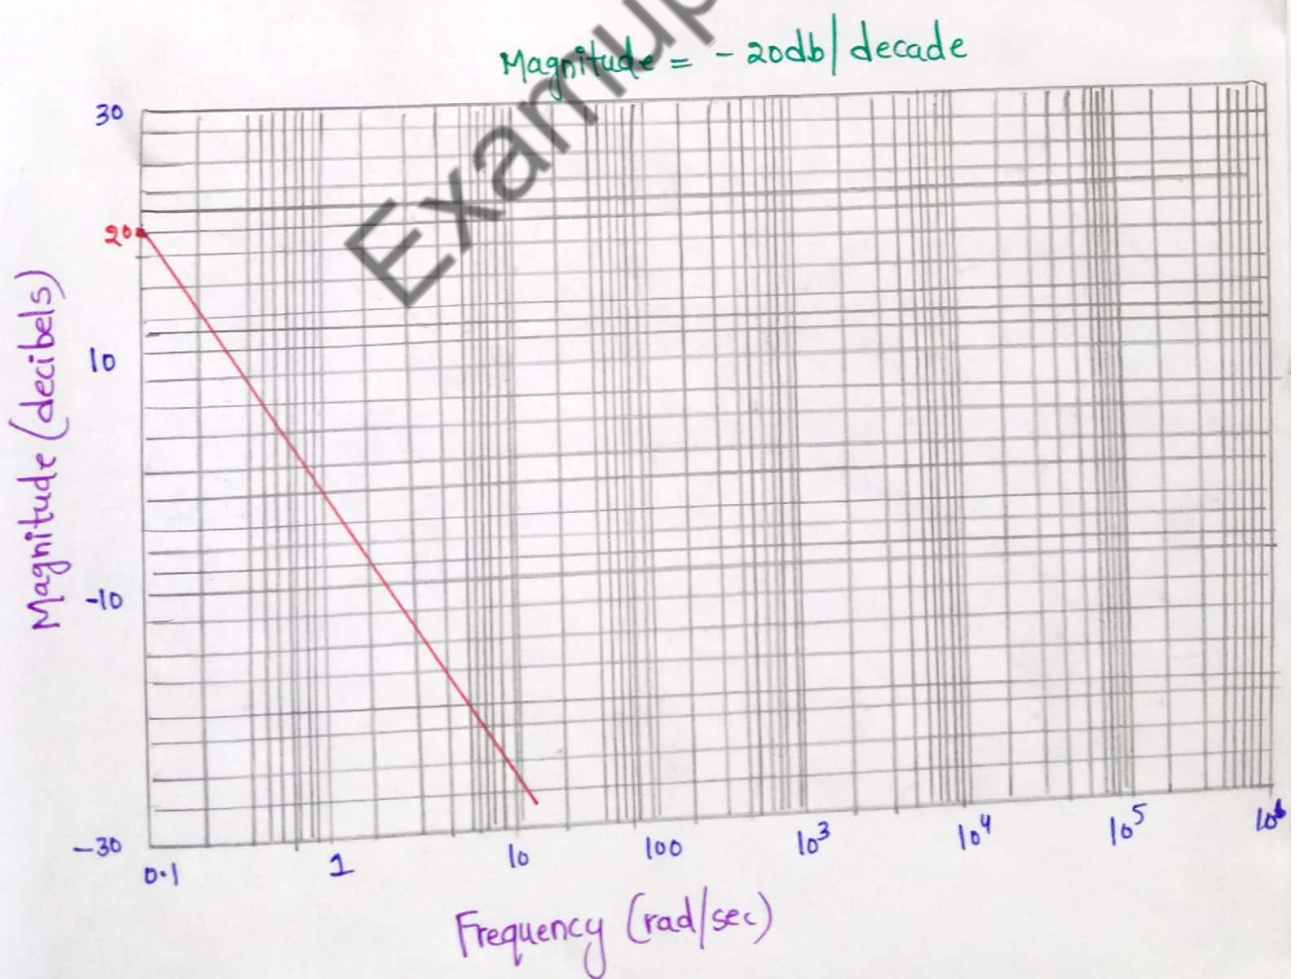 Magnitude = - 20db/decade
Examup
30
20
10
-10
-30
Magnitude (decibels)
0.1 1 10 100 10³ 10⁴ 10⁵ 10⁶
Frequency (rad/sec)